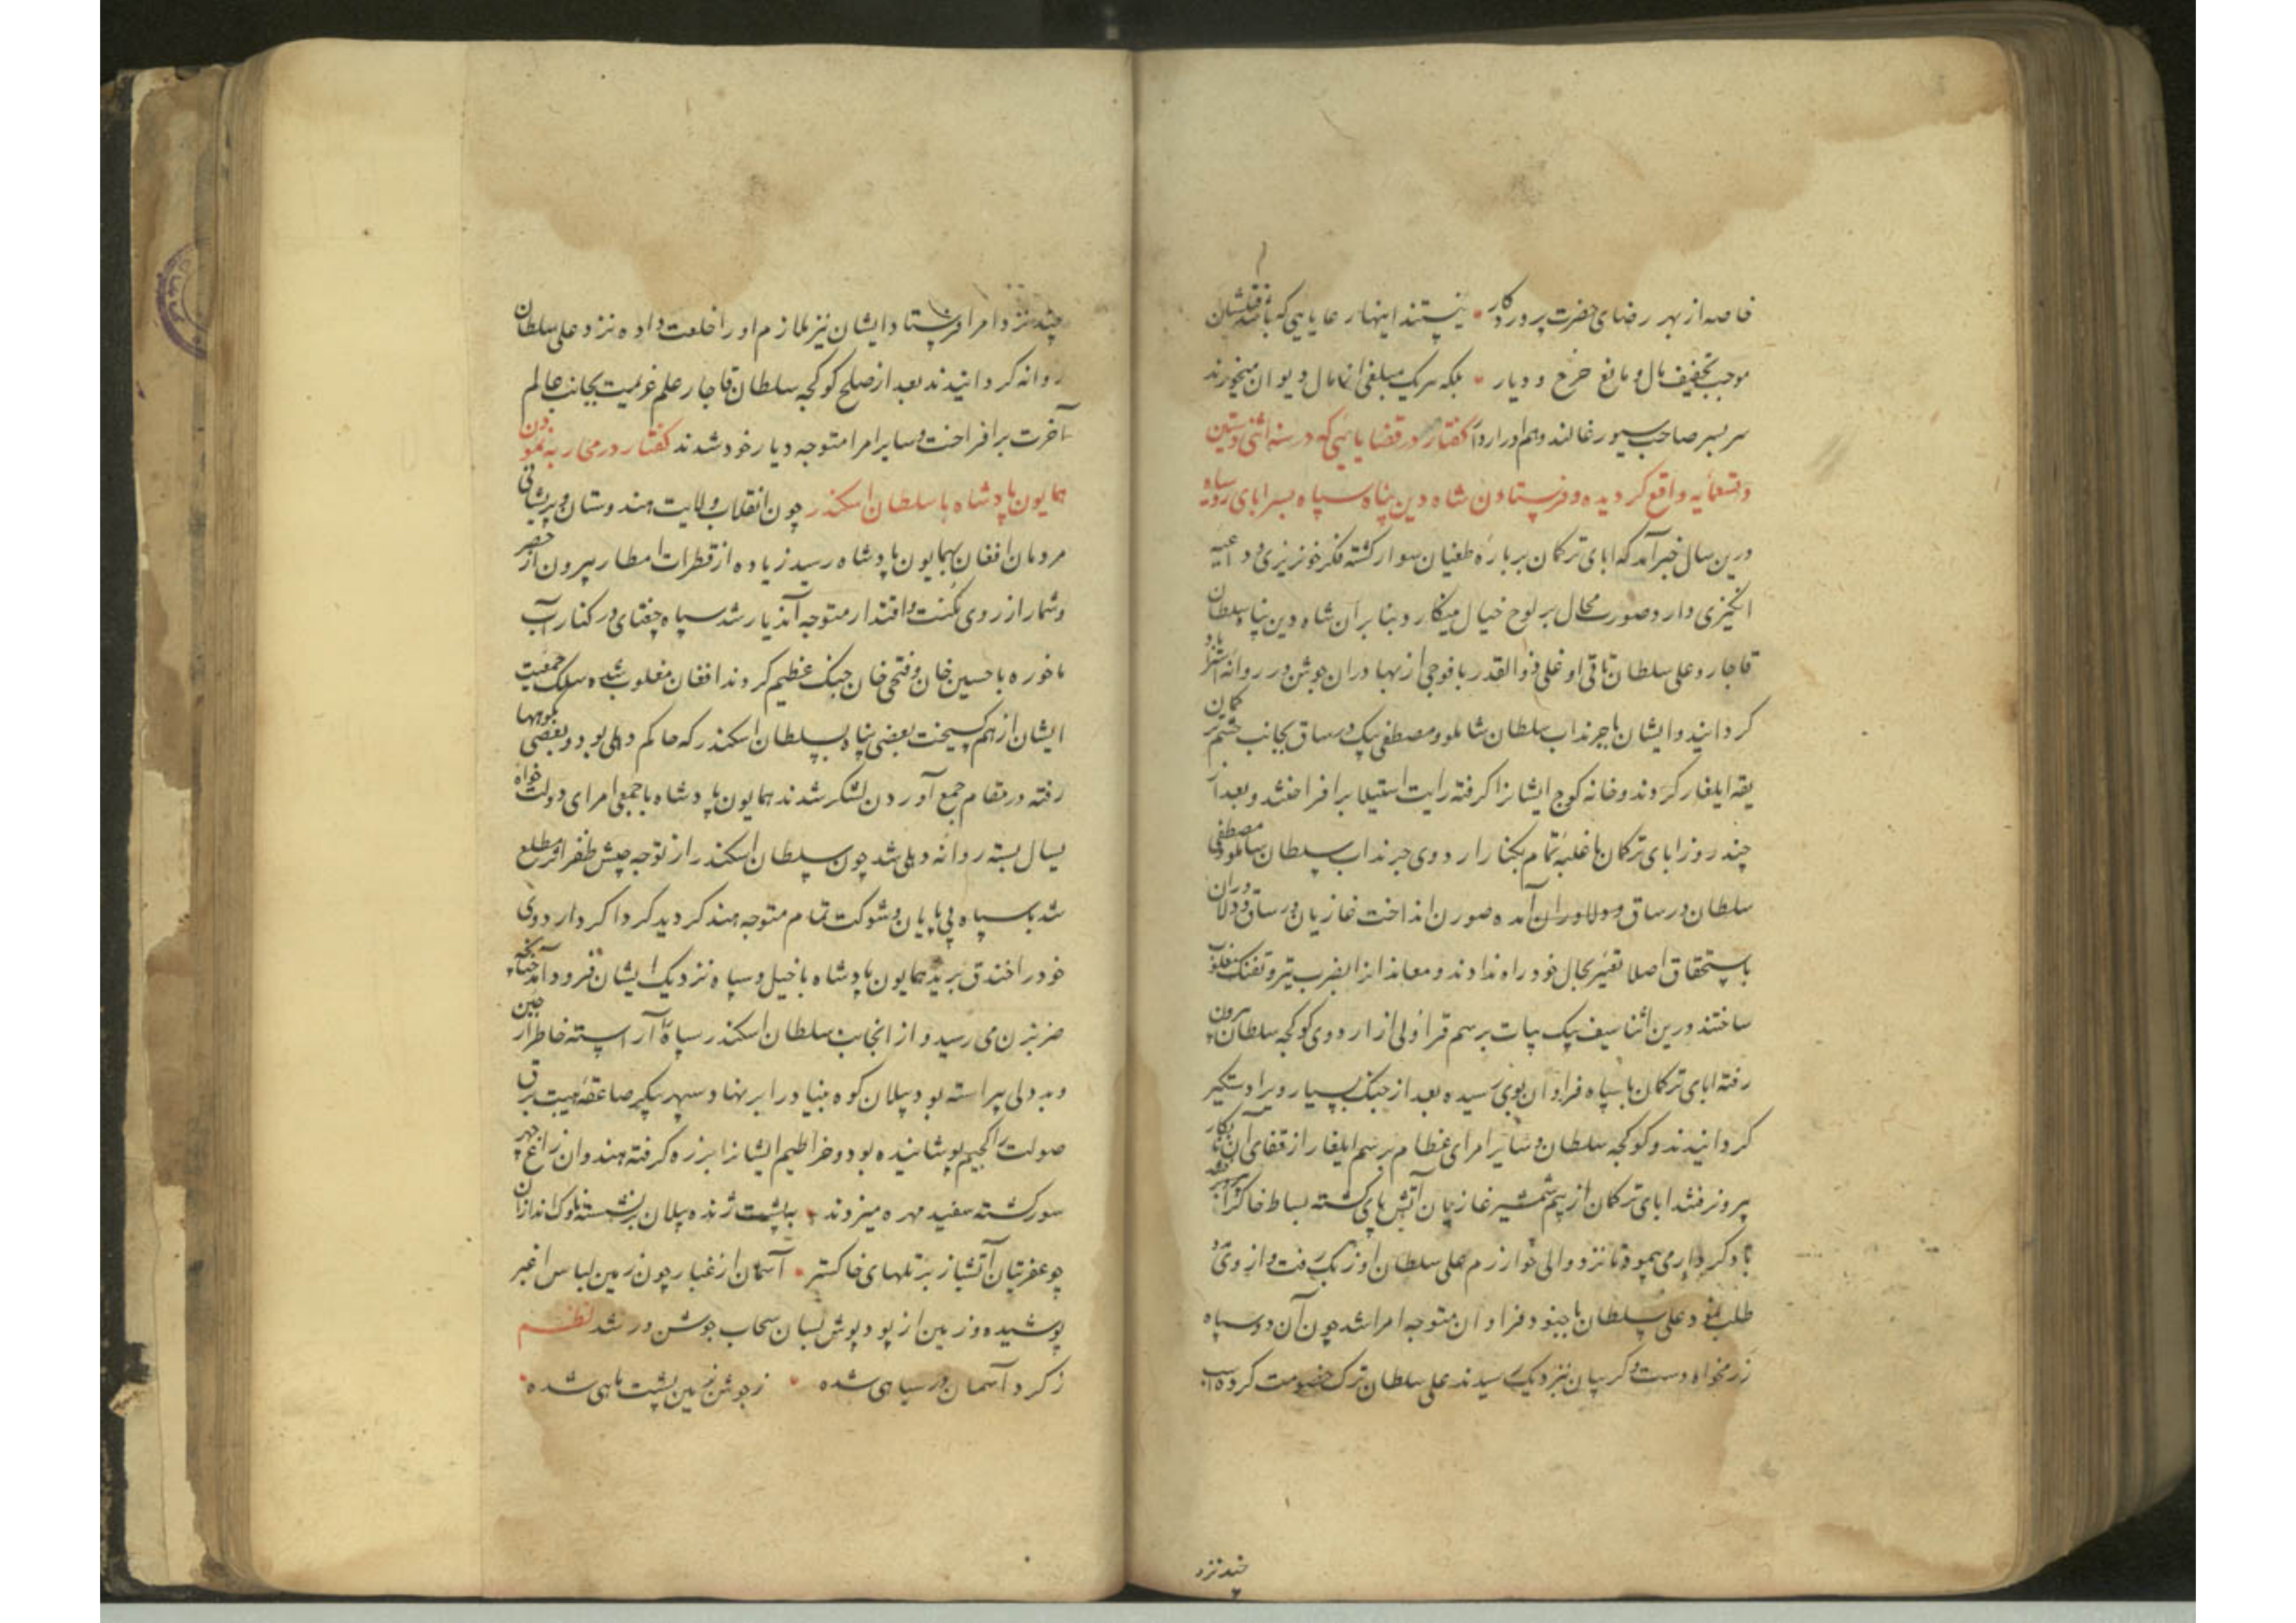 خاصه از بهر رضای حضرت پروردگار نیستند اینها رعایایی که باشد قتلشان
موجب تخفیف مال و مانع خرج و دیار بلکه هریک مبلغی از مال دیوان میخورند
سر بسر صاحب سیورغالند و هم ادراردار گفتار در قضایایی که در سنه اثنی و ستین
و تسعمایه واقع گردیده و فرستادن شاه دین پناه سپاه بسر ابای روسیاه
درین سال خبر آمد که ابای ترکمان بر باره طغیان سوار گشته فکر خونریزی و داعیه
انگیزی دارد و صورت محال بر لوح خیال مینگارد بنابر آن شاه دین پناه سلطان
قاجار و علی سلطان تاتی اوغلی ذوالقدر با فوجی از بهادران جوشن در روانه استراباد
گردانید و ایشان با چرنداب سلطان شاملو و مصطفی بیک ورساق بجانب ترکمان
یقه ایلغار کردند و خانه کوچ ایشانرا گرفته رایت استیلا برافراختند و بعد از
چند روز ابای ترکمان با غلبه تمام بکنار اردوی چرنداب سلطان شاملو و مصطفی
سلطان ورساق و دلاوران آمده صورن انداخت غازیان ورساق و دلاوران
باستحقاق اصلا تغییر بحال خود راه ندادند و معاندانرا بضرب تیر و تفنک مغلوب
ساختند درین اثنا سیف بیک بیات برسم قراولی از اردوی کوکجه سلطان بیرون
رفته ابای ترکمان با سپاه فراوان بوی رسیده بعد از جنک بسیار ویرا دستگیر
گردانیدند و کوکجه سلطان و سایر امرای عظام برسم ایلغار از قفای آن نابکار
بیرون رفتند ابای ترکمان از بیم شمشیر غازیان آتش پای گشته بساط خاک را
باد کردار می پیمود تا نزد والی خوارزم علی سلطان اوزبک رفت و از وی مدد
طلب نمود علی سلطان با جنود فراوان متوجه امرا شد چون آن دو سپاه
رزمخواه دست و گریبان نزدیک رسیدند علی سلطان ترک خصومت کرده اسب
چند نزد
چند نزد امرا فرستاد ایشان نیز ملازم او را خلعت داده نزد علی سلطان
روانه گردانیدند بعد از صلح کوکجه سلطان قاجار علم عزیمت بجانب عالم
آخرت برافراخت و سایر امرا متوجه دیار خود شدند گفتار در محاربه نمودن
همایون پادشاه با سلطان اسکندر چون انقلاب ولایت هندوستان و پریشانی
مردمان افغان بهمایون پادشاه رسید زیاده از قطرات امطار بیرون از حصر
و شمار از روی مکنت و اقتدار متوجه آندیار شد سپاه جغتای در کنار آب
ماخوره با حسین خان و فتحی خان جنک عظیم کردند افغان مغلوب شده سلک جمعیت
ایشان از هم گسیخت بعضی پناه بسلطان اسکندر که حاکم دهلی بود و بعضی بکوهها
رفته در مقام جمع آوردن لشکر شدند همایون پادشاه با جمعی امرای دولت خواه
یسال بسته روانه دهلی شد چون سلطان اسکندر از توجه جیش ظفر اثر مطلع
شد با سپاه بی پایان و شوکت تمام متوجه هند گردید گرداگرد اردوی
خود را خندق برید همایون پادشاه با خیل و سپاه نزدیک ایشان فرود آمد چنانچه
ضربزن می رسید و از انجانب سلطان اسکندر سپاه را آراسته خاطر از جبن
و بد دلی پیراسته بود پیلان کوه بنیاد را ابر نهاد سپهر پیکر صاعقه هیبت برق
صولت را کجیم پوشانیده بود و خراطیم ایشانرا بزره گرفته هندوان زاغ چهر
سور گشته سفید مهره میزدند بپشت ژنده پیلان برنشسته ناوک اندازان
چو عفریتان آتشبار بر تلهای خاکستر آسمان از غبار چون زمین لباس اغبر
پوشیده و زمین از پود پوش بسان سحاب جوشن ور شد نظم
ز گرد آسمان در سیاهی شده ز جوشن زمین پشت ماهی شده